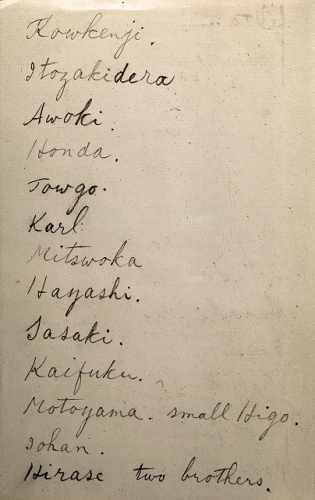 Kowkenji.
Itozakidera
Awoki.
Honda.
Towgo.
Karl
Mitswoka
Hayashi.
Sasaki.
Kaifuku.
Motoyama. small Higo.
Johan.
Hirase two brothers.